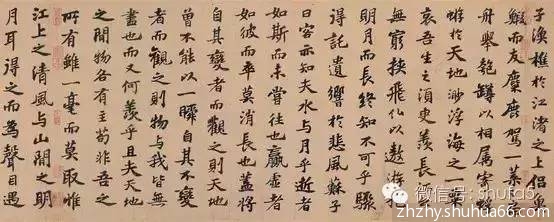 子漁樵於江渚之上侶魚
鰕而友麋鹿駕一葉
舟舉匏罇以相屬寄蜉
蝣於天地渺浮海之一粟
哀吾生之須臾羨長
無窮挾飛仙以遨遊抱
明月而長終知不可乎驟
得託遺響於悲風蘇子
曰客亦知夫水與月乎逝者
如斯而未嘗往也贏虛者
如彼而卒莫消長也蓋將
自其變者而觀之則天地
曾不能以一瞬自其不變
者而觀之則物與我皆無
盡也而又何羨乎且夫天地
之間物各有主苟非吾之
所有雖一毫而莫取惟
江上之清風與山間之明
月耳得之而為聲目遇
微信号: shufa67
zhzhy.shuhua66.com